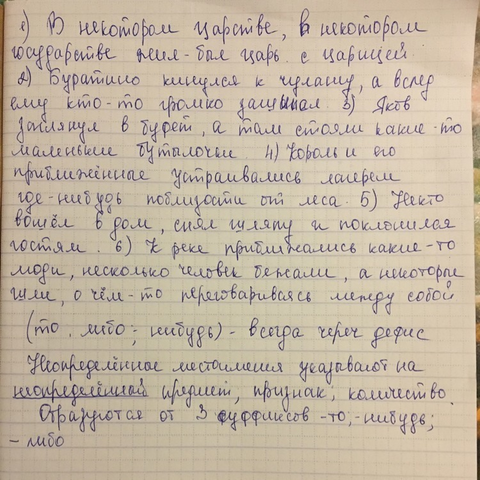 1) В некотором царстве, в некотором
государстве жил-был царь с царицей.
2) Буратино кинулся к чулану, а вслед
ему кто-то громко зашипел. 3) Яков
заглянул в буфет, а там стояли какие-то
маленькие бутылочки 4) Король и его
приближённые устраивались лагерем
где-нибудь поблизости от леса. 5) Некто
вошёл в дом, снял шляпу и поклонился
гостям. 6) К реке приближались какие-то
люди, несколько человек бежали, а некоторые
шли, о чём-то переговариваясь между собой
(то, либо, нибудь) - всегда через дефис
Неопределённые местоимения указывают на
неопределённый предмет, признак, количество.
Образуются от 3 суффиксов -то; -нибудь;
- либо